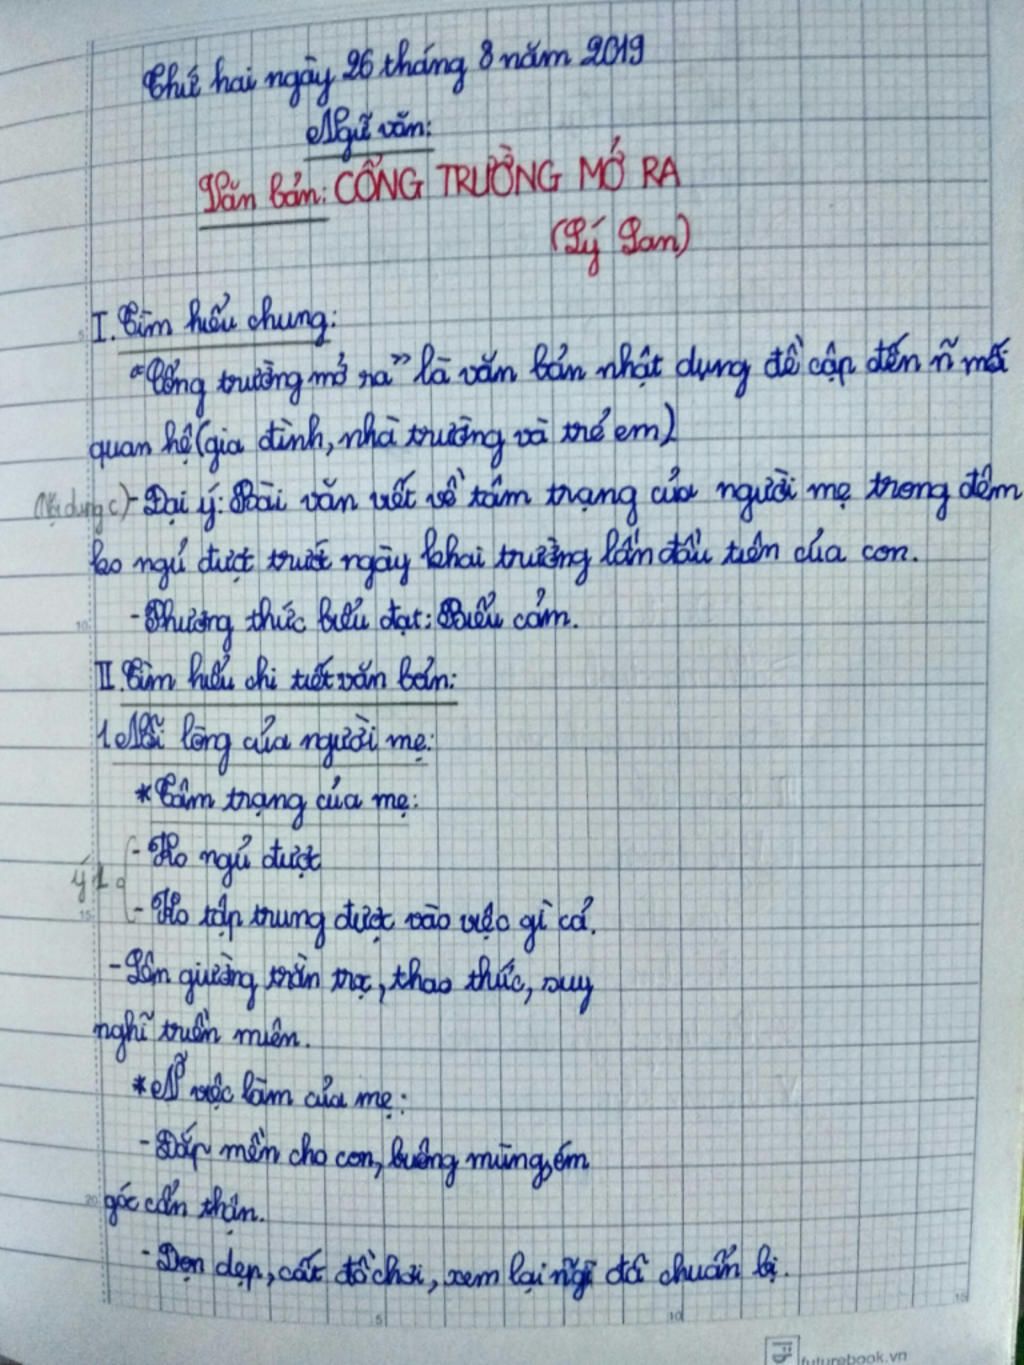 Thứ hai ngày 26 tháng 8 năm 2019
Ngữ văn:
Văn bản: CỔNG TRƯỜNG MỞ RA
(Lý Lan)
I. Tìm hiểu chung:
"Cổng trường mở ra" là văn bản nhật dụng đề cập đến ñ mối
quan hệ (gia đình, nhà trường và trẻ em)
(Nội dung c) - Đại ý: Bài văn viết về tâm trạng của người mẹ trong đêm
ko ngủ được trước ngày khai trường lần đầu tiên của con.
- Phương thức biểu đạt: Biểu cảm.
II. Tìm hiểu chi tiết văn bản:
1. Nỗi lòng của người mẹ:
* Tâm trạng của mẹ:
- Ko ngủ được
ý 1.
- Ko tập trung được vào việc gì cả.
- Lên giường trằn trọc, thao thức, suy
nghĩ triền miên.
* Ñ việc làm của mẹ:
- Đắp mền cho con, buông mùng, ém
góc cẩn thận.
- Dọn dẹp, cất đồ chơi, xem lại đã chuẩn bị.
5
10
15
20
5
10
15
futurebook.vn